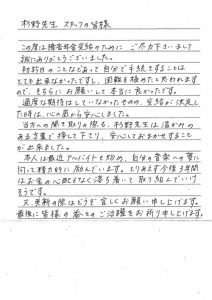 杉野先生 スタッフの皆様
この度は障害年金受給のために ご尽力下さいまして
誠にありがとうございました。
初診日のことなどあって自分で手続きをすることは
とても出来なかったですし、困難を極めたと思われますので、
きちらにお願いして本当に良かったです。
過度な期待はしていなかったものの、受給が決定し
た時は、心の底から安心しました。
当方への聞き取りの際も、杉野先生は温かみの
ある言葉で接して下さり、安心しておまかせすること
が出来ました。
本人は最近アルバイトを始め、自分の音楽への夢に
向って精力的に励んでいます。とりあえず今後3年間
はお金の心配もなく落ち着いて取り組んでいけ
そうです。
又、更新の際はどうぞ宜しくお願い申し上げます。
最後に皆様の益々のご活躍をお祈り申し上げます。